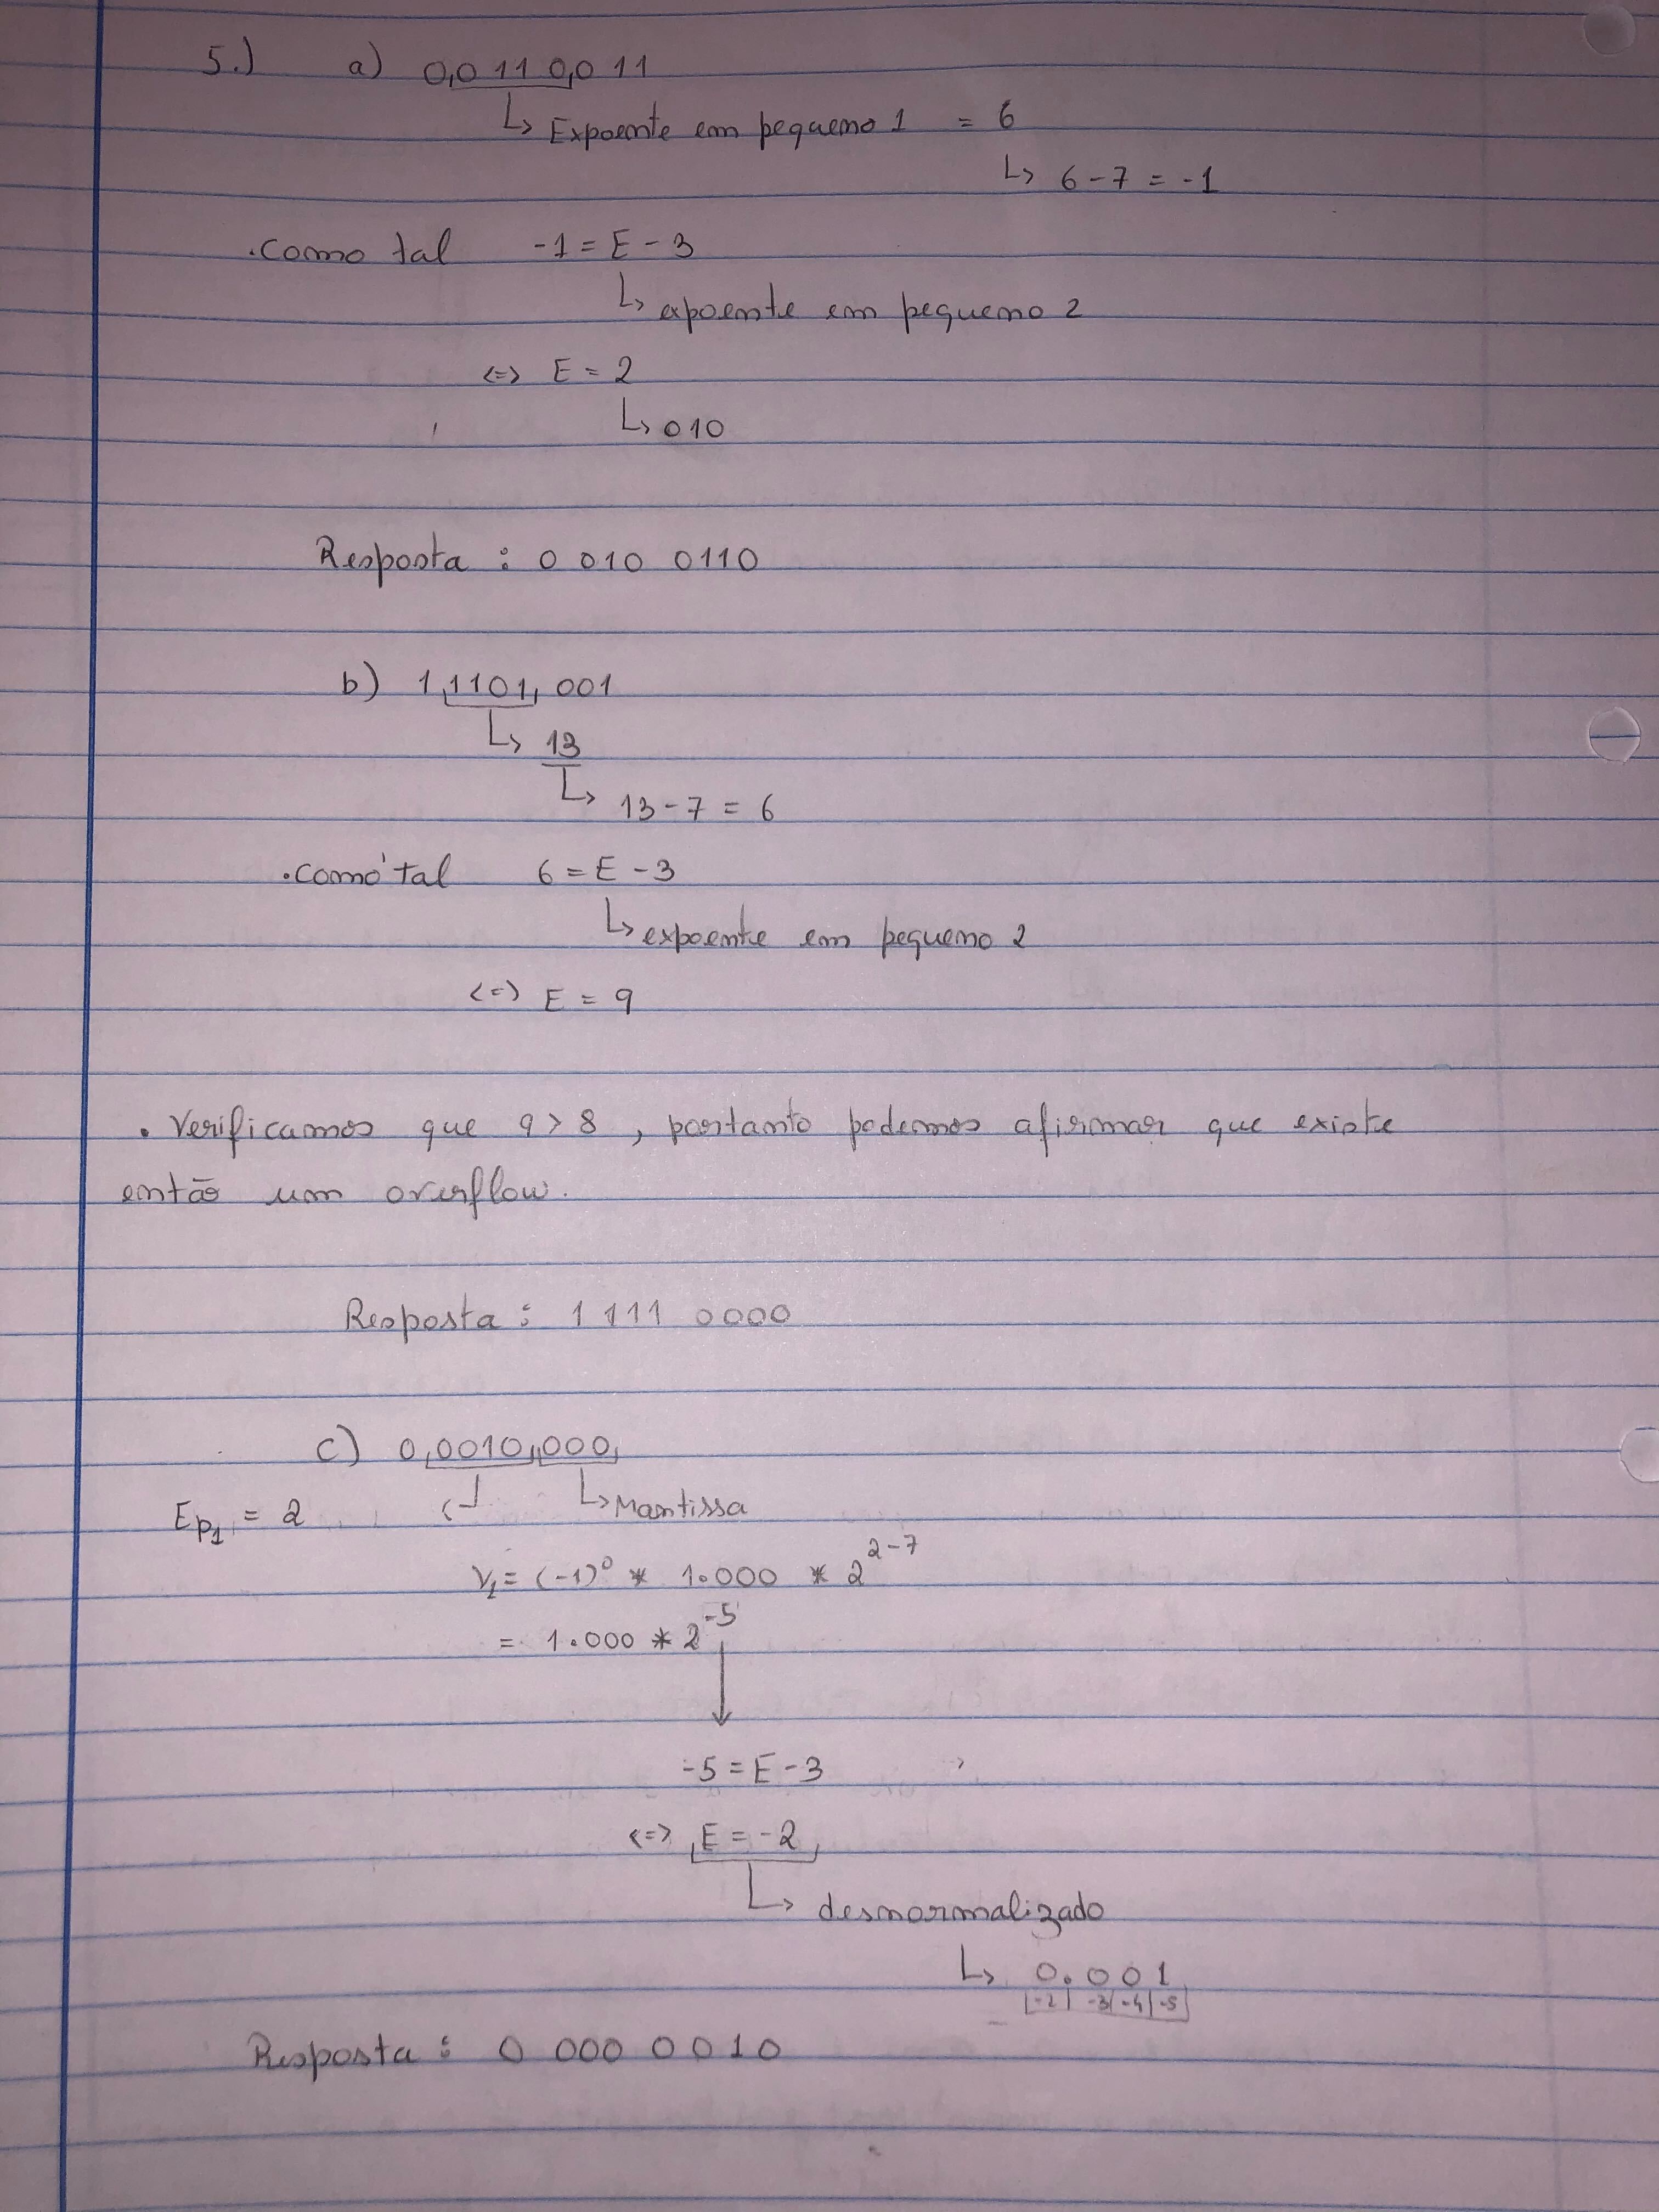 5.) a) 0,0110,011
↳ Expoente em pequeno 1 = 6
↳ 6-7 = -1
.como tal -1 = E - 3
↳ expoente em pequeno 2
<=> E = 2
↳ 010
Resposta : 0 010 0110
b) 1,1101,001
↳ 13
↳ 13-7 = 6
.como tal 6 = E - 3
↳ expoente em pequeno 2
<=> E = 9
. Verificamos que 9 > 8 , portanto podemos afirmar que existe
então um overflow.
Resposta : 1 111 0000
c) 0,0010,000,
Ep1 = 2 ↳ Mantissa
V1 = (-1)^0 * 1.000 * 2^2-7
= 1.000 * 2^-5
-5 = E - 3
<=> E = -2
↳ desnormalizado
↳ 0.001
-2 -3 -4 -5
Resposta : 0 000 0010